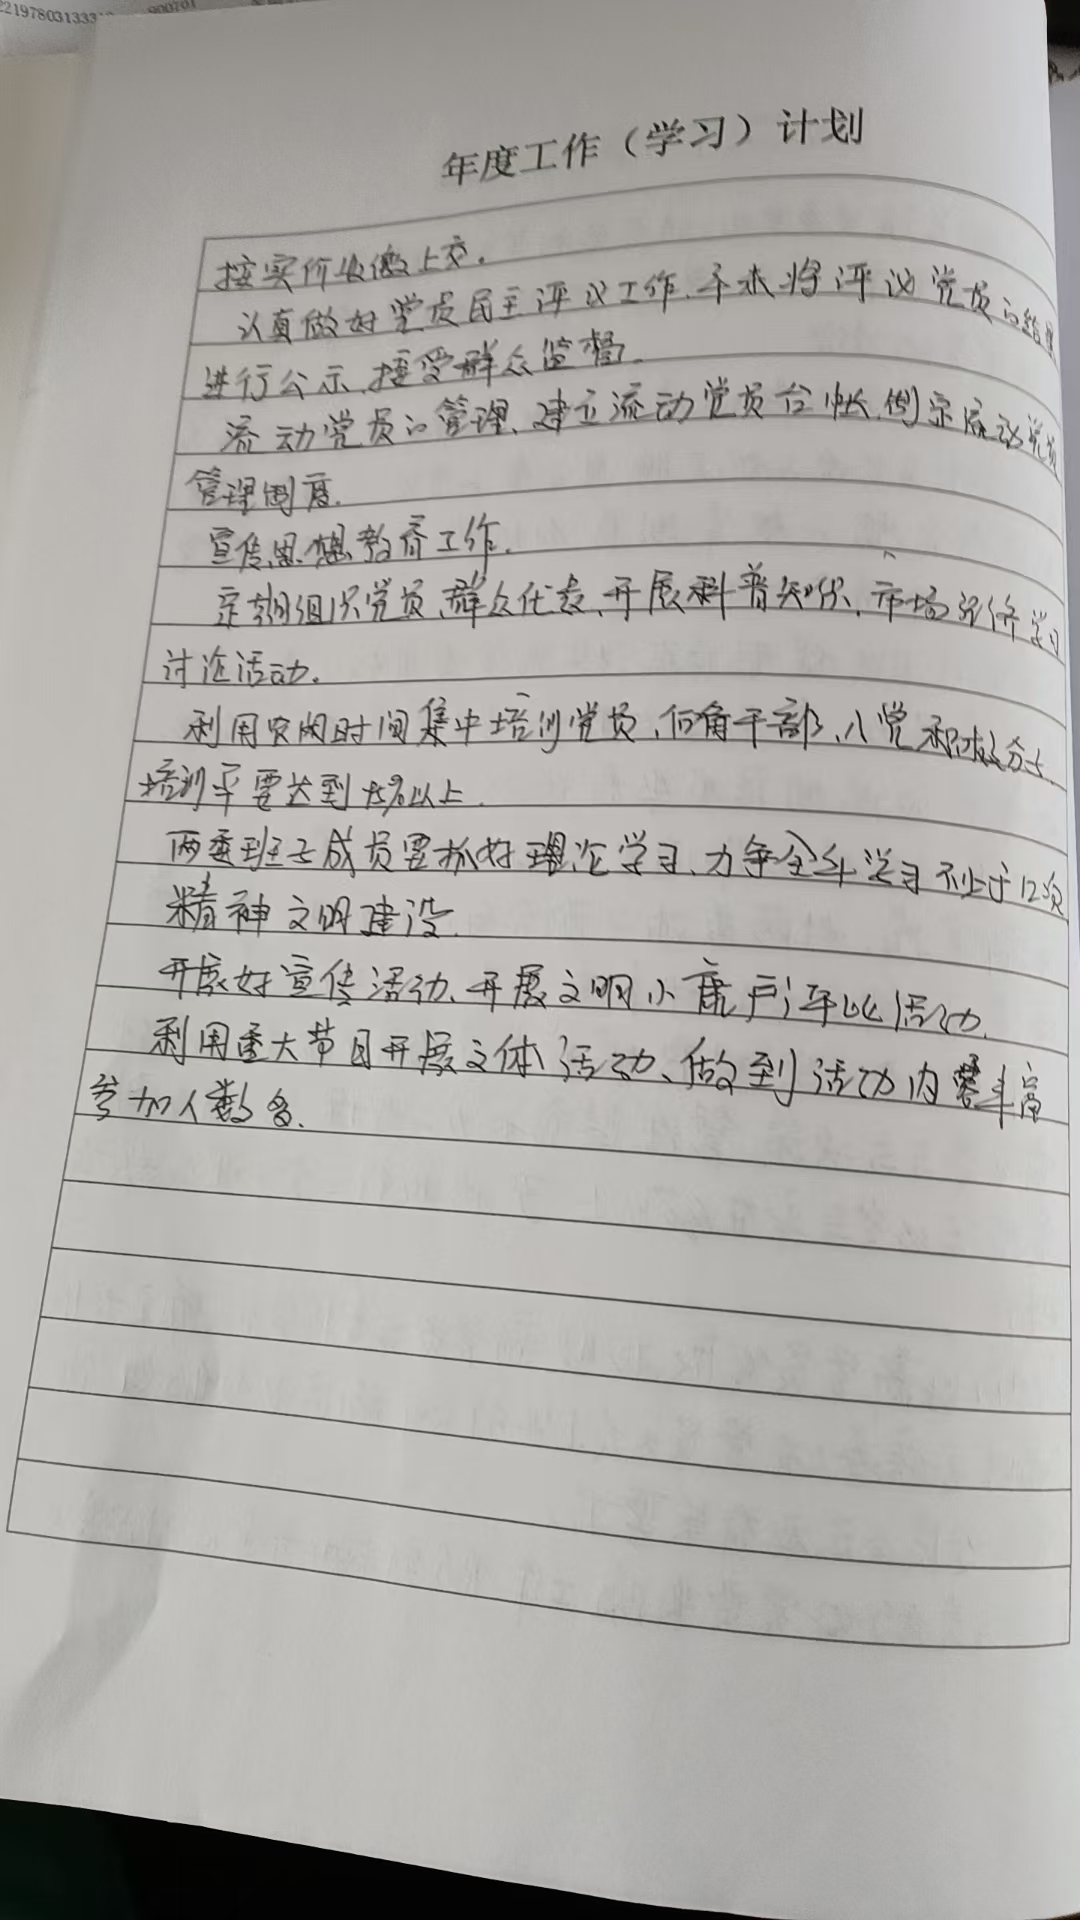 年度工作（学习）计划
按实价收缴上交。
认真做好党员民主评议工作、年末将评议党员的结果
进行公示、接受群众监督。
流动党员的管理、建立流动党员台帐、制定流动党员
管理制度。
宣传思想教育工作。
定期组织党员、群众代表、开展科普知识、市场经济学习
讨论活动。
利用农闲时间集中培训党员、干部、入党积极分子、
培训率要达到以上。
两委班子成员要抓好理论学习、力争全年学习不少于12次
精神文明建设。
开展好宣传活动、开展文明小康户评比活动。
利用重大节日开展文体活动、做到活动内容丰富
参加人数多。